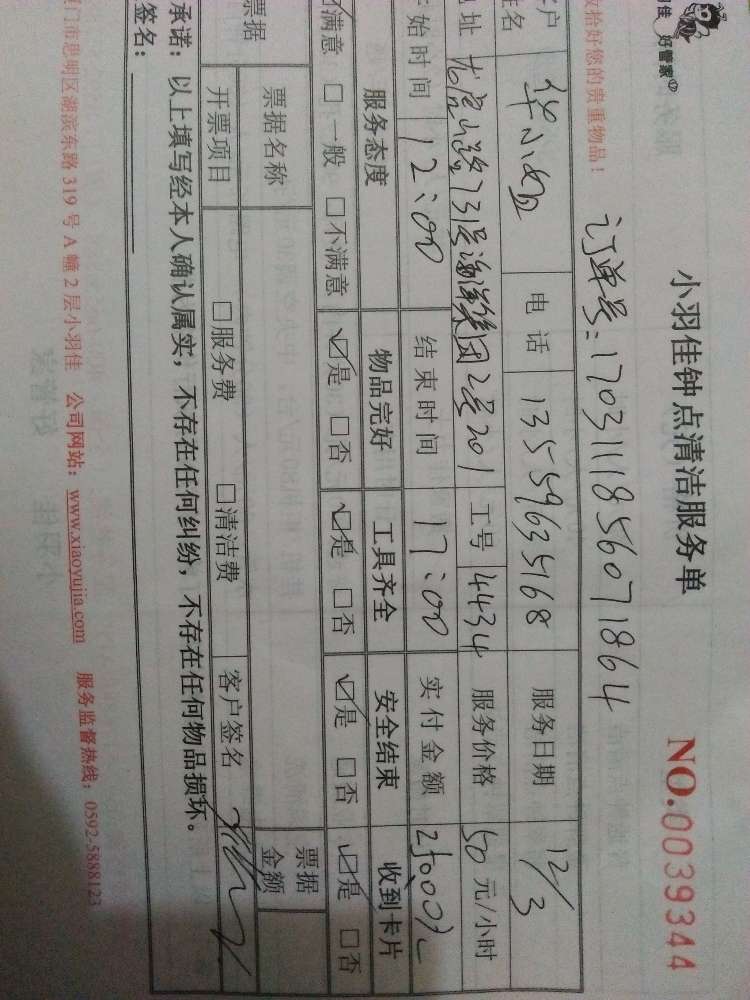 好管家
小羽佳钟点清洁服务单
NO.0039344
收拾好您的贵重物品！
订单号：1703111856071864
客户姓名 华小姐 电话 13559635168 服务日期 12/3
地址 731号海洋集团2号201 工号 4434 服务价格 50元/小时
开始时间 12:00 结束时间 17:00 实付金额 250.00元
服务态度 物品完好 工具齐全 安全结束 收到卡片
☑满意 □一般 □不满意 ☑是 □否 ☑是 □否 ☑是 □否 ☑是 □否
票据 票据名称 票据金额
开票项目 □服务费 □清洁费 客户签名
承诺：以上填写经本人确认属实，不存在任何纠纷，不存在任何物品损坏。
签名：
厦门市思明区湖滨东路319号A幢2层小羽佳 公司网站：www.xiaoyujia.com 服务监督热线：0592-5888123